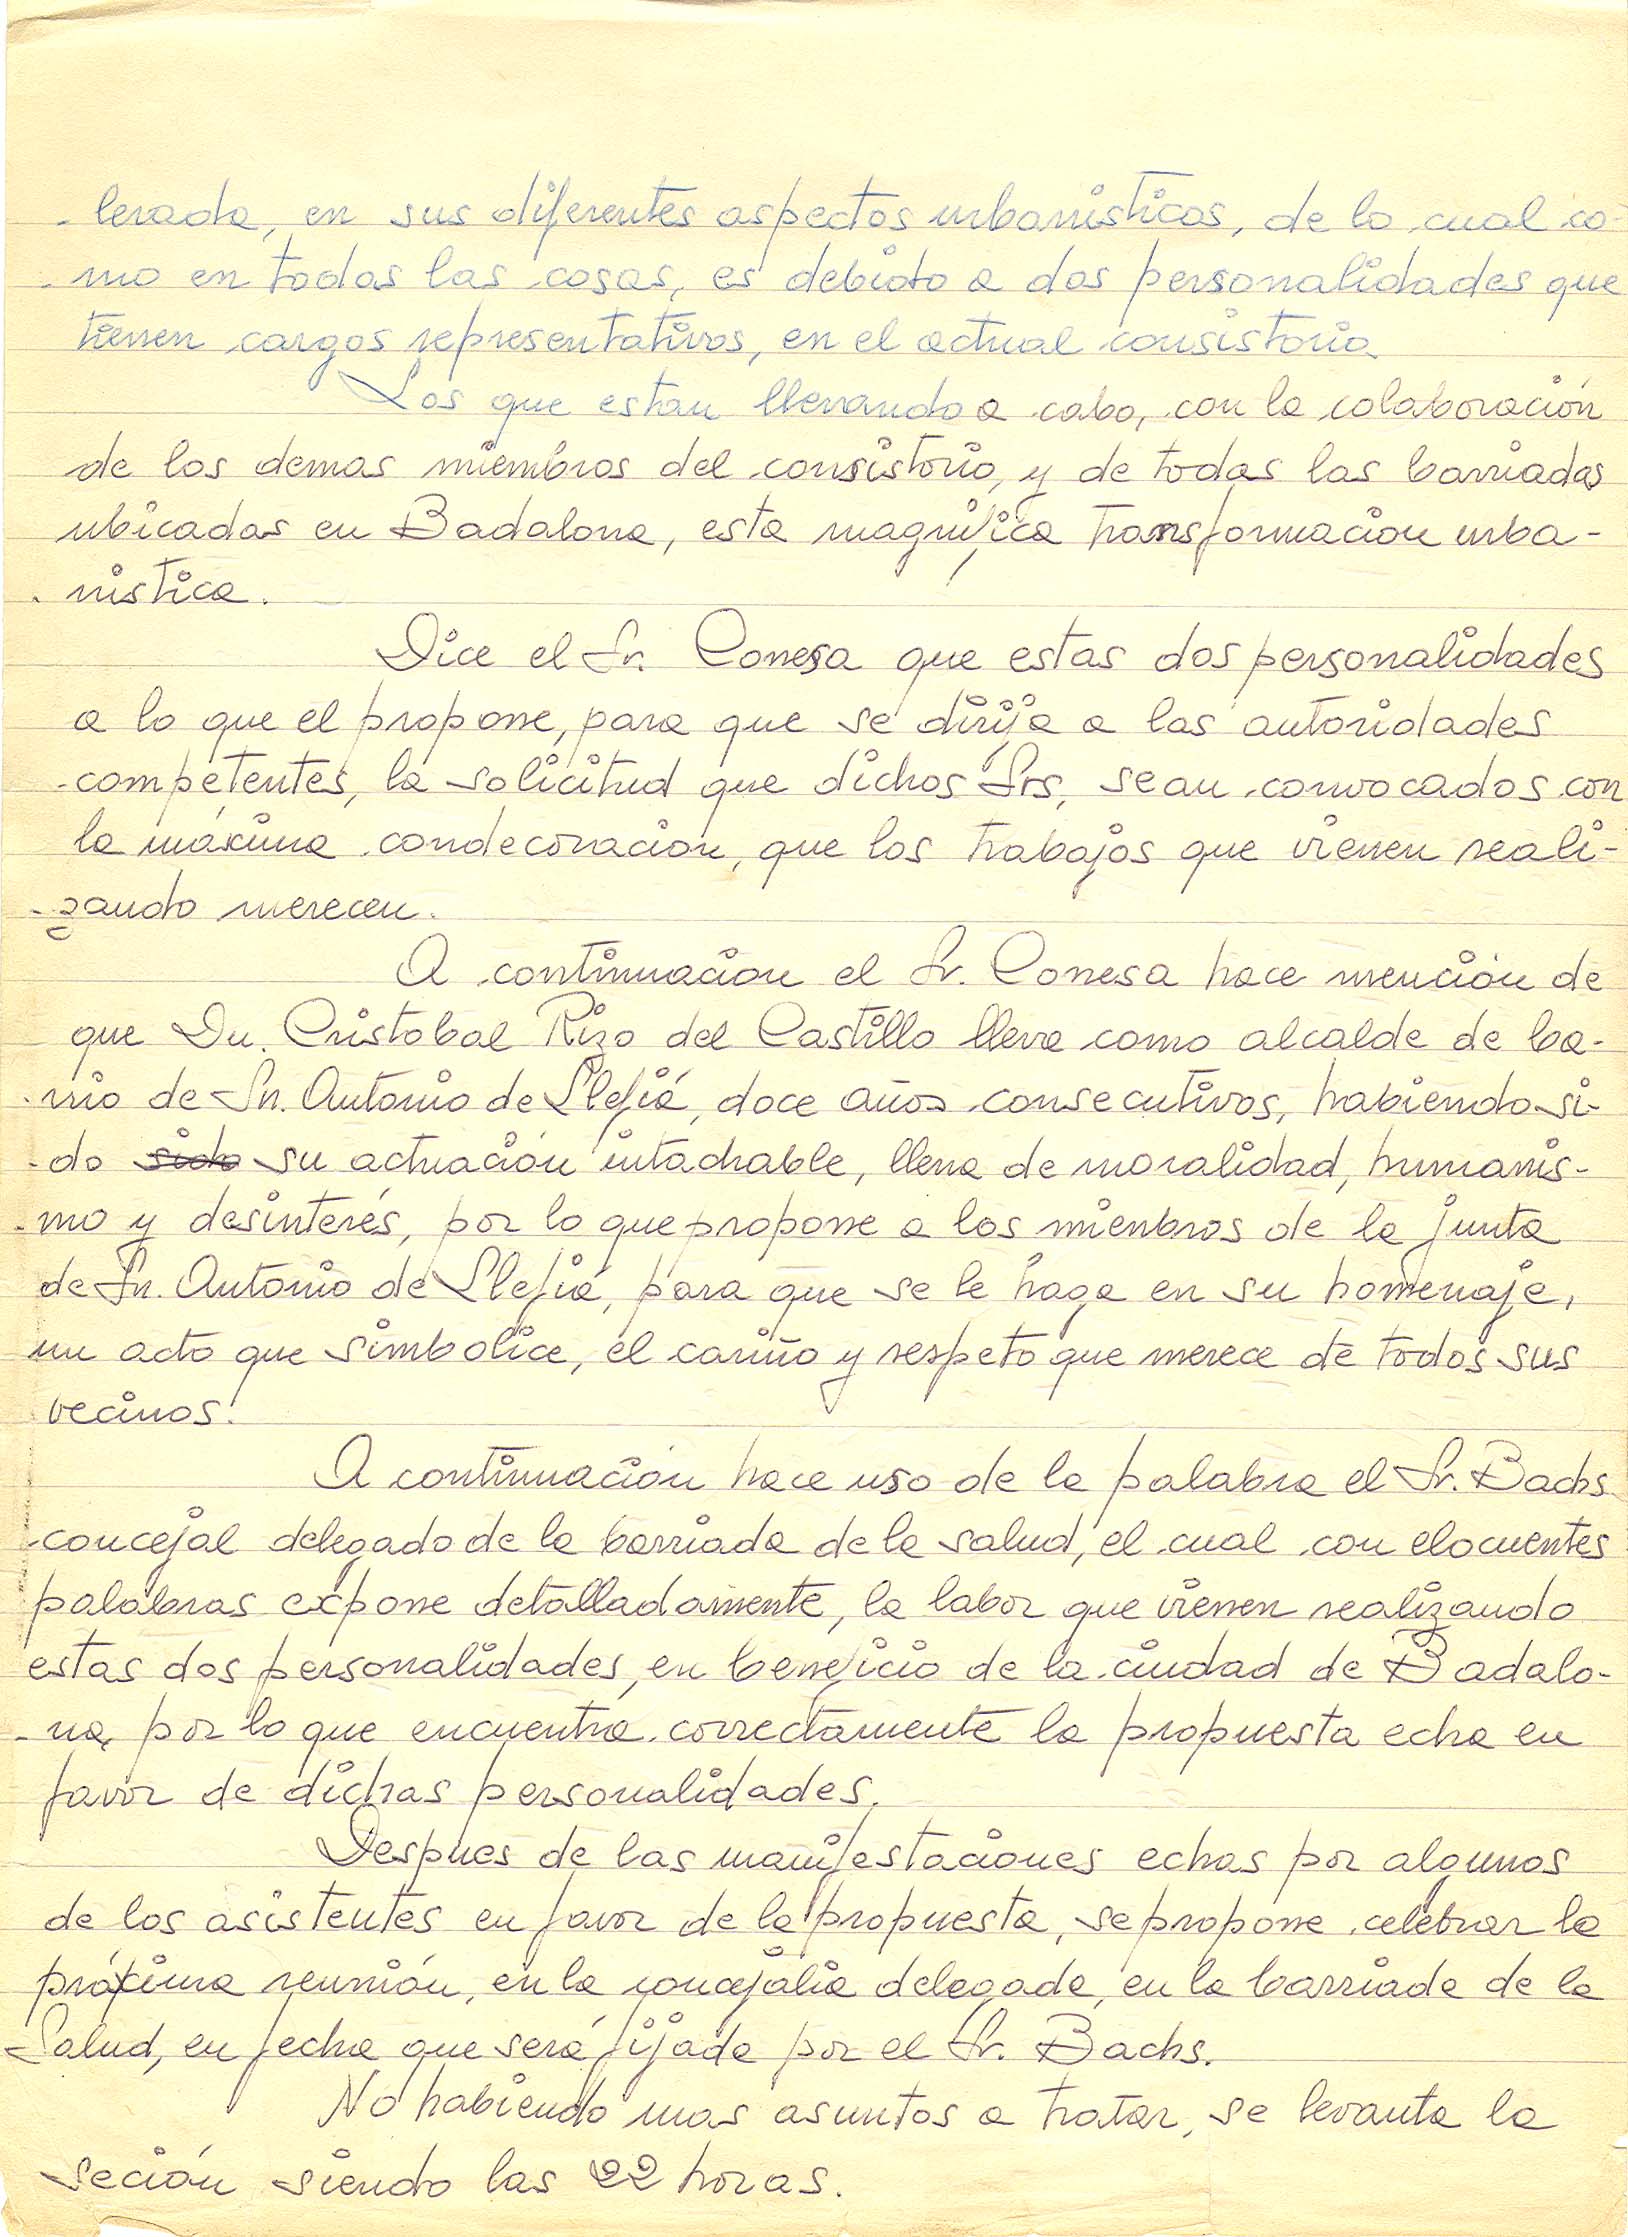 - lerada, en sus diferentes aspectos urbanisticos, de lo cual co-
- mo en todas las cosas, es debido a dos personalidades que
tienen cargos representativos, en el actual consistorio.
Los que estan llevando a cabo, con la colaboración
de los demas miembros del consistorio, y de todas las barriadas
ubicadas en Badalona, esta magnifica transformacion urba-
- nistica.
Dice el Sr. Conesa que estas dos personalidades
a lo que el propone, para que se dirija a las autoridades
competentes, la solicitud que dichos Srs, sean convocados con
la máxima condecoración, que los trabajos que vienen reali-
- zando merecen.
A continuacion el Sr. Conesa hace mención de
que Dn. Cristobal Rizo del Castillo lleva como alcalde de ba-
- rrio de Sn. Antonio de Llefiá, doce años consecutivos, habiendo si-
- do sido su actuación intachable, llena de moralidad, humanis-
- mo y desinterés, por lo que propone a los mienbros de la junta
de Sn. Antonio de Llefiá, para que se le haga en su homenaje,
un acto que simbolice, el cariño y respeto que merece de todos sus
vecinos.
A continuación hace uso de la palabra el Sr. Bachs
concejal delegado de la barriada de la salud, el cual con elocuentes
palabras expone detalladamente, la labor que vienen realizando
estas dos personalidades, en beneficio de la ciudad de Badalo-
- na, por lo que encuentra correctamente la propuesta echa en
favor de dichas personalidades.
Despues de las manifestaciones echas por algunos
de los asistentes en favor de la propuesta, se propone celebrar la
próxima reunión, en la concejalia delegada, en la barriada de la
Salud, en fecha que será fijada por el Sr. Bachs.
No habiendo mas asuntos a tratar, se levanta la
seción siendo las 22 horas.